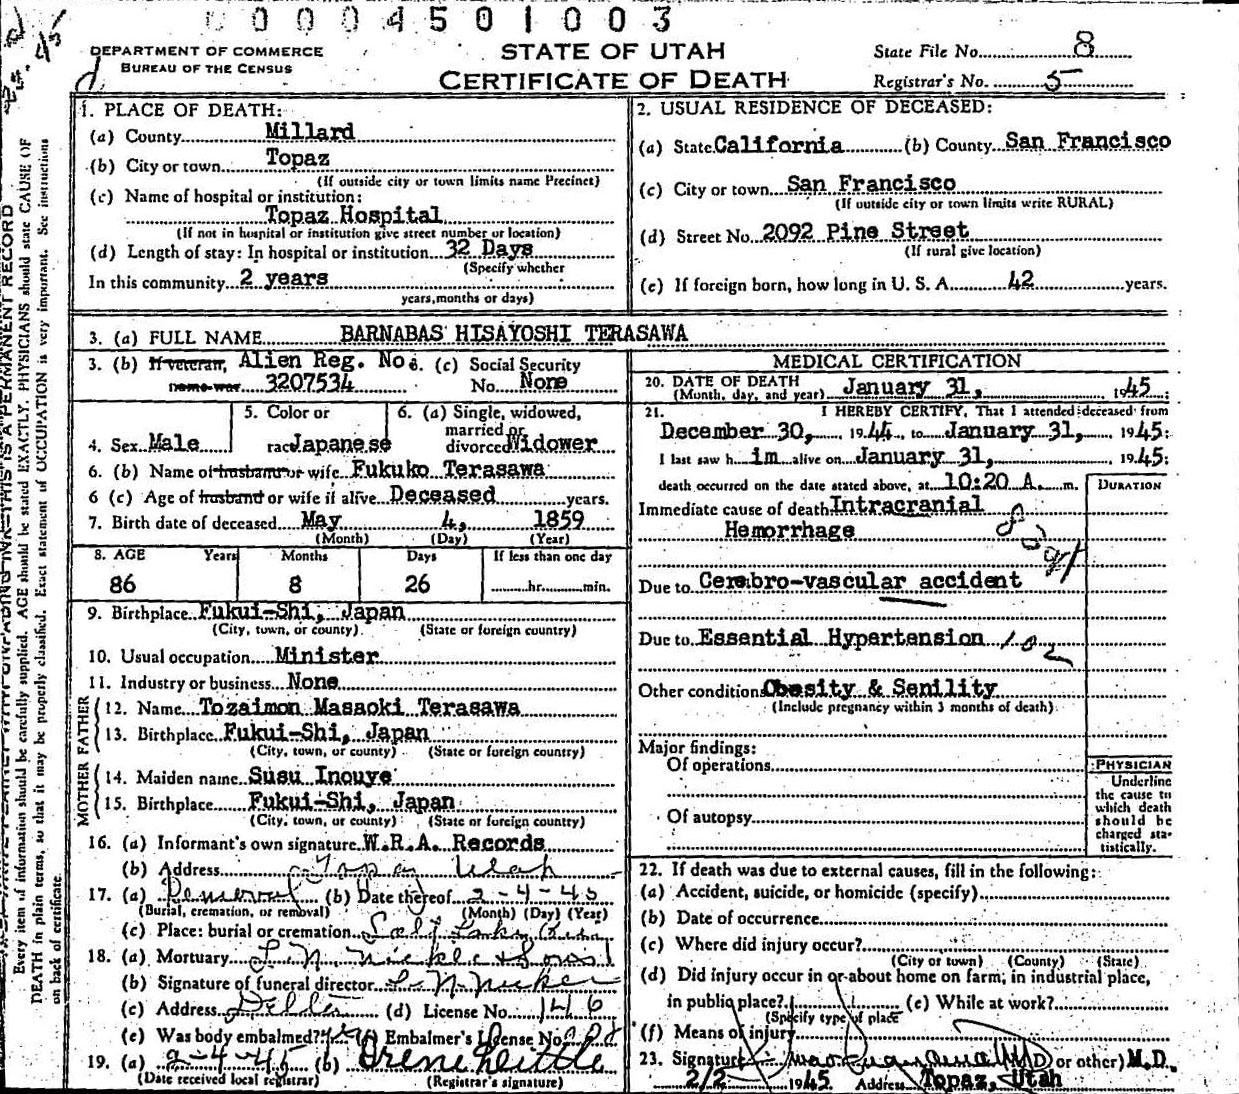 00004501003
DEPARTMENT OF COMMERCE
BUREAU OF THE CENSUS
STATE OF UTAH
CERTIFICATE OF DEATH
State File No. 8
Registrar's No. 5
1. PLACE OF DEATH:
(a) County Millard
(b) City or town Topaz
(If outside city or town limits name Precinct)
(c) Name of hospital or institution:
Topaz Hospital
(If not in hospital or institution give street number or location)
(d) Length of stay: In hospital or institution 32 Days
(Specify whether
In this community 2 years
years, months or days)
2. USUAL RESIDENCE OF DECEASED:
(a) State California (b) County San Francisco
(c) City or town San Francisco
(If outside city or town limits write RURAL)
(d) Street No. 2092 Pine Street
(If rural give location)
(e) If foreign born, how long in U. S. A. 42 years.
3. (a) FULL NAME BARNABAS HISAYOSHI TERASAWA
3. (b) If veteran, Alien Reg. No. (c) Social Security
name war 3207534 No. None
4. Sex Male
5. Color or
race Japanese
6. (a) Single, widowed,
married or
divorced Widower
6. (b) Name of husband or wife Fukuko Terasawa
6 (c) Age of husband or wife if alive Deceased years.
7. Birth date of deceased May 4, 1859
(Month) (Day) (Year)
8. AGE Years Months Days If less than one day
86 8 26 hr. min.
9. Birthplace Fukui-Shi, Japan
(City, town, or county) (State or foreign country)
10. Usual occupation Minister
11. Industry or business None
FATHER
12. Name Tozaimon Masaoki Terasawa
13. Birthplace Fukui-Shi, Japan
(City, town, or county) (State or foreign country)
MOTHER
14. Maiden name Susu Inouye
15. Birthplace Fukui-Shi, Japan
(City, town, or county) (State or foreign country)
16. (a) Informant's own signature W.R.A. Records
(b) Address Topaz Utah
17. (a) Removal (b) Date thereof 2-4-45
(Burial, cremation, or removal) (Month) (Day) (Year)
(c) Place: burial or cremation Salt Lake
18. (a) Mortuary
(b) Signature of funeral director
(c) Address Delta (d) License No. 146
(e) Was body embalmed? yes (f) Embalmer's License No.
19. (a) 2-4-45 (b)
(Date received local registrar) (Registrar's signature)
MEDICAL CERTIFICATION
20. DATE OF DEATH
(Month, day, and year) January 31, 1945
21. I HEREBY CERTIFY, That I attended deceased from
December 30, 1944, to January 31, 1945:
I last saw him alive on January 31, 1945:
death occurred on the date stated above, at 10:20 A. m.
DURATION
Immediate cause of death Intracranial
Hemorrhage
Due to Cerebro-vascular accident
Due to Essential Hypertension 102
Other conditions Obesity & Senility
(Include pregnancy within 3 months of death)
Major findings:
Of operations
Of autopsy
PHYSICIAN
Underline
the cause to
which death
should be
charged sta-
tistically.
22. If death was due to external causes, fill in the following:
(a) Accident, suicide, or homicide (specify)
(b) Date of occurrence
(c) Where did injury occur?
(City or town) (County) (State)
(d) Did injury occur in or about home on farm, in industrial place,
in public place? (e) While at work?
(Specify type of place
(f) Means of injury
23. Signature (M.D. or other) M.D.
2/2 1945 Address Topaz, Utah
Every item of information should be carefully supplied. AGE should be stated EXACTLY. PHYSICIANS should state CAUSE OF
DEATH in plain terms, so that it may be properly classified. Exact statement of OCCUPATION is very important. See instructions
on back of certificate.